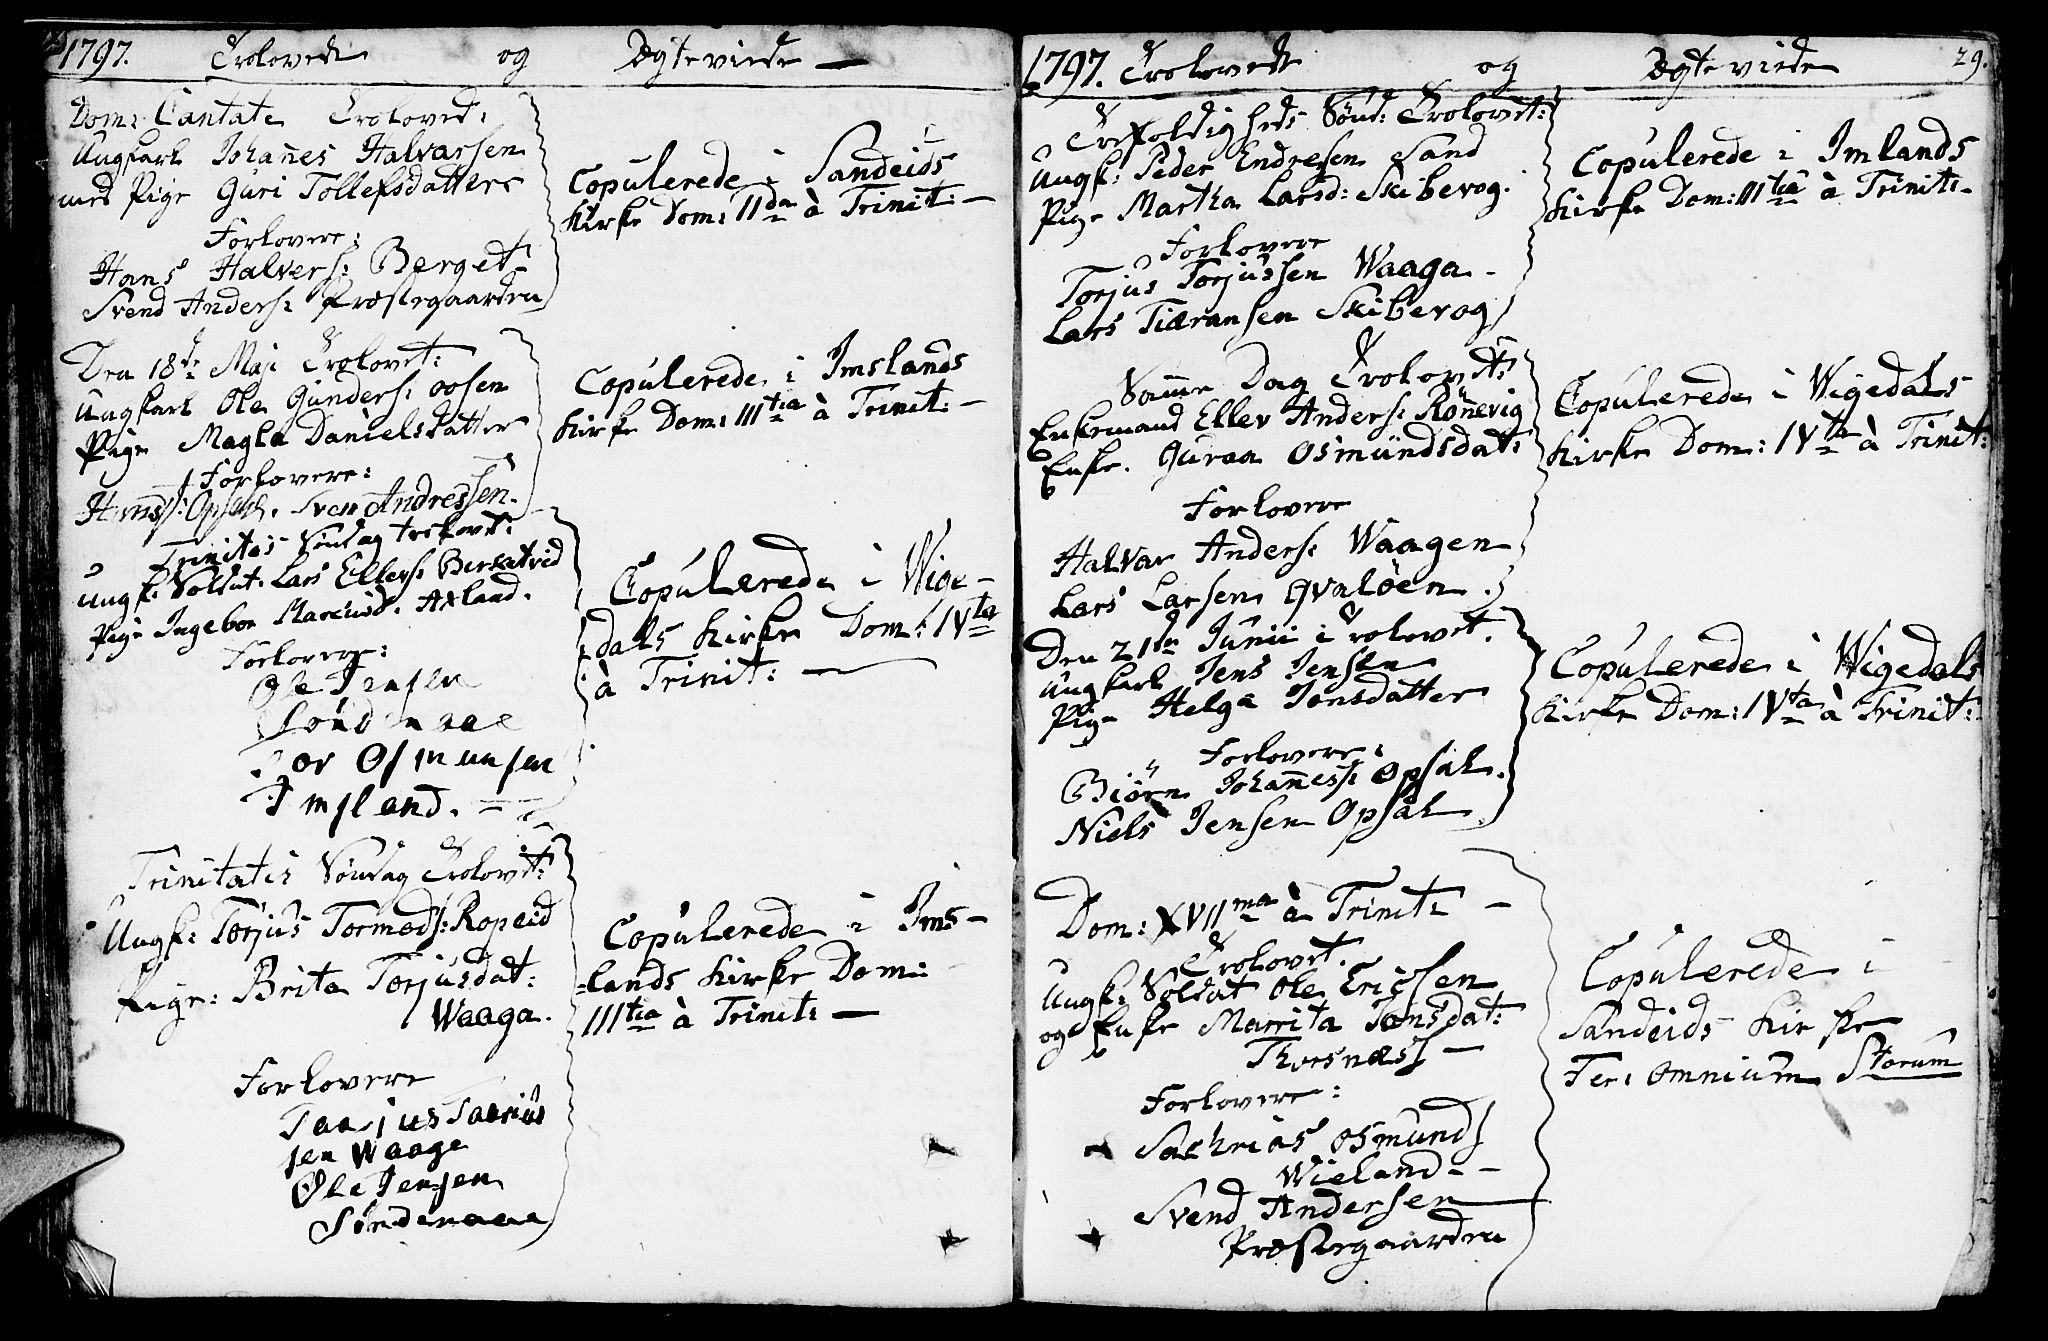 1797. Trolovede og Ægteviede —
Dom: Cantate Troloved:
Ungkarl Johan̄es Halvarsen
med Pige Guri Tollefsdatter
Forlovere:
Hans Halvers: Berget
Svend Anders: Præstegaarden
Copulerede i Sandeids
Kirke Dom: IIda à Trinit: —
Den 18de Maji Trolovet:
Ungkarl Ole Gunders: oosen
Pige Magla Danielsdatter
Forlovere:
Hans J: Opsal. Sven Andressen.
Copulerede i Imslands
Kirke Dom: IIItia à Trinit: —
Trinitas Söndag trolovt:
Ungk: Soldat Lars Ellers: Bersatvid
Pige Ingebor Marcusd. Axland.
Forlovere:
Ole Jensen
Söndenaae
Tor Osmunsen
Imsland. —
Copulerede i Wige-
dals Kirke Dom: IVta
à Trinit: —
Trinitatis Söndag Trolovet:
Ungk: Torjus Tormods: Ropeid
Pige: Brita Torjusdat:
Waaga.
Forlovere
Taarjus Taarius
sen Waage
Ole Jensen
Söndenaae
Copulerede i Ims-
lands Kirke Dom:
IIItia à Trinit: —
1797. Trolovede og Ægteviede 29.
Trefoldigheds Sönd: Trolovet:
Ungk: Peder Endresen Sand
Pige Martha Larsd: Skibevog.
Forlovere
Torjus Torjussen Waaga -
Lars Tiæransen Skibevog
Copulerede i Imlands
Kirke Dom: IIItia à Trinit: -
Sam̄e Dag Trolovet:
Enkemand Ellev Anders: Rön̄evig
Enke. Guroa Osmundsdat:
Forlovere
Halvar Anders: Waagen
Lars Larsen Qvalöen.
Copulerede i Wigedals
Kirke Dom: IVta à Trinit:
Den 21de Junii Trolovet.
Ungkarl Jens Jensen
Pige Helga Jonsdatter
Forlovere:
Biörn Johan̄ess: Opsal.
Niels Jensen Opsal
Copulerede i Wigedals
Kirke Dom: IVta à Trinit:
Dom: XVIIma à Trinit: -
Trolovet.
Ungk: Soldat Ole Ericsen
og Enke Marrita Tonsdat:
Thorsnæs —
Forlovere:
Sachrias Osmunds
Wieland - -
Svend Andersen
Præstegaarden
Copulerede i
Sandeids Kirke
Fer: omnium Storum